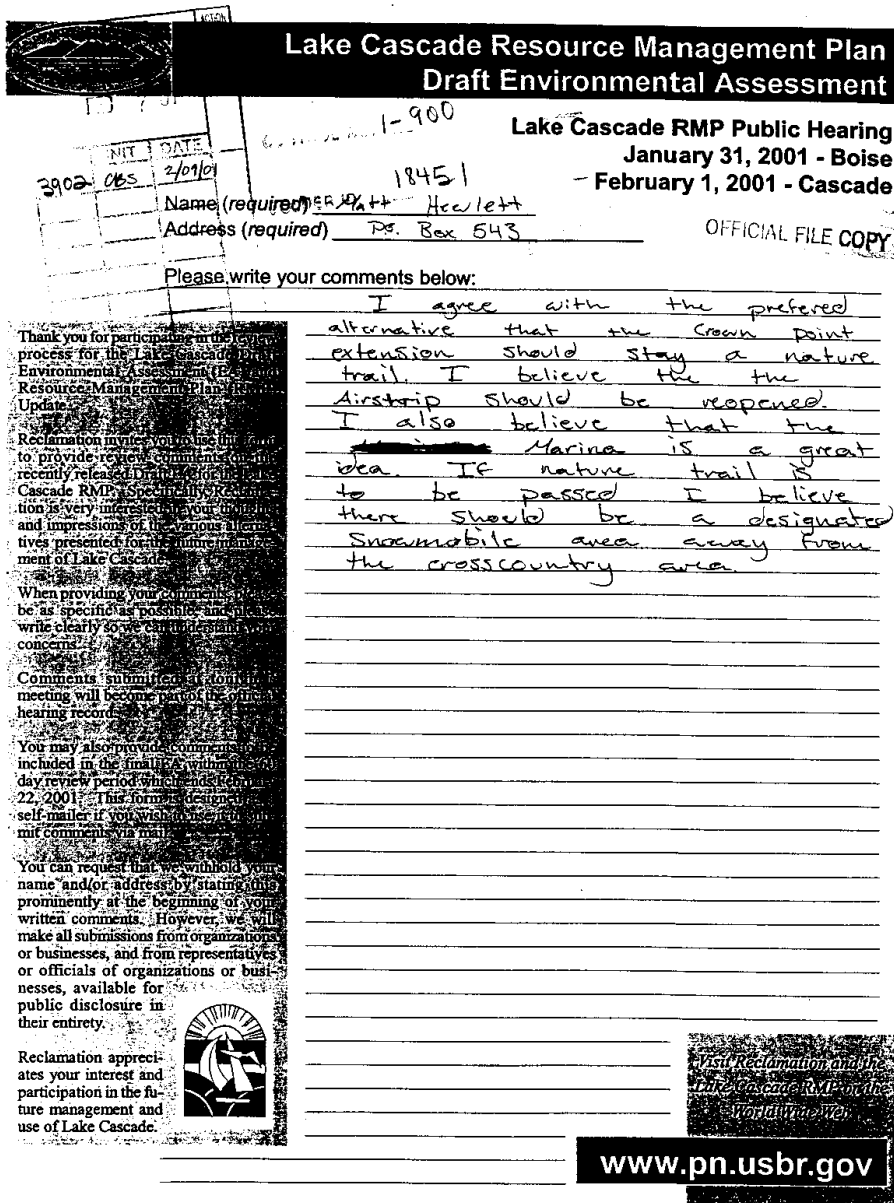 ACTION
Lake Cascade Resource Management Plan
Draft Environmental Assessment
1-900
Lake Cascade RMP Public Hearing
January 31, 2001 - Boise
February 1, 2001 - Cascade
NIT DATE
3902 CBS 2/09/01
18451
Name (required) Matt Hewlett
Address (required) Po. Box 543
OFFICIAL FILE COPY
Please write your comments below:
I agree with the prefered
alternative that the Crown point
extension should stay a nature
trail. I believe the the
Airstrip should be reopened.
I also believe that the
Marina is a great
idea. If nature trail is
to be passed I believe
there should be a designated
Snowmobile area away from
the crosscountry area.
Thank you for participating in the review
process for the Lake Cascade Draft
Environmental Assessment (EA) and
Resource Management Plan (RMP)
Update.
Reclamation invites you to use this form
to provide review comments on the
recently released Draft EA for the Lake
Cascade RMP. Specifically, Reclama-
tion is very interested in your thoughts
and impressions of the various alterna-
tives presented for the future manage-
ment of Lake Cascade.
When providing your comments, please
be as specific as possible, and please
write clearly so we can understand your
concerns.
Comments submitted at tonight's
meeting will become part of the official
hearing record.
You may also provide comments to be
included in the final EA within the
day review period which ends February
22, 2001. This form is designed as a
self-mailer if you wish to use it to sub-
mit comments via mail.
You can request that we withhold your
name and/or address by stating this
prominently at the beginning of your
written comments. However, we will
make all submissions from organizations
or businesses, and from representatives
or officials of organizations or busi-
nesses, available for
public disclosure in
their entirety.
Reclamation appreci-
ates your interest and
participation in the fu-
ture management and
use of Lake Cascade.
Visit Reclamation and the
Lake Cascade RMP on the
World Wide Web
www.pn.usbr.gov